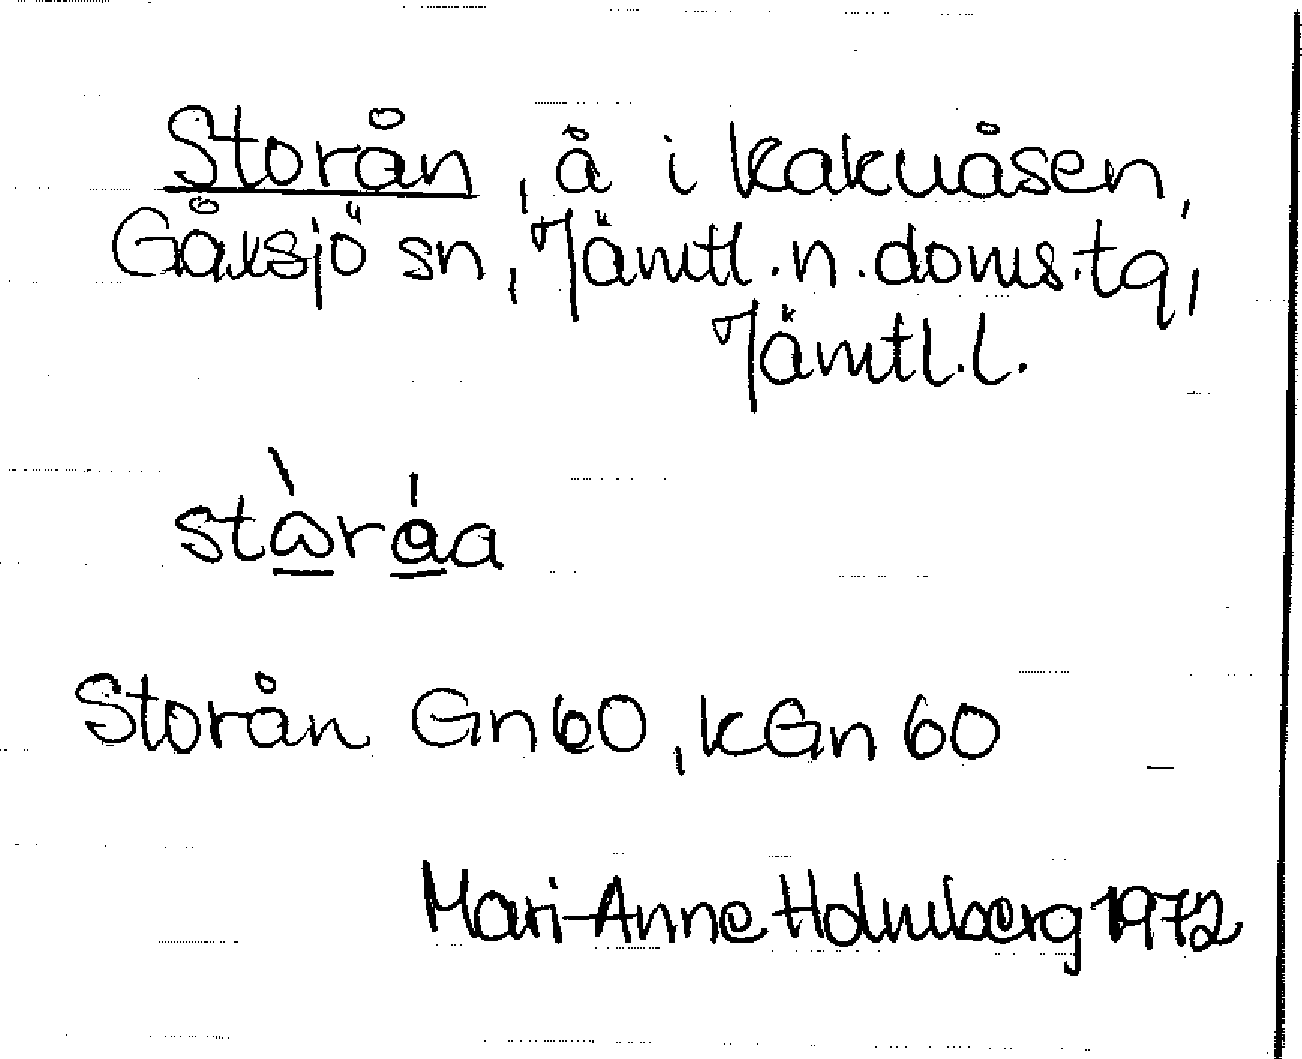 Storån, å i Kakuåsen,
Gåxsjö sn, Jämtl.n.doms.tg,
Jämtl.l.
Storån Gn60, kGn 60
Mari-Anne Holmberg 1972